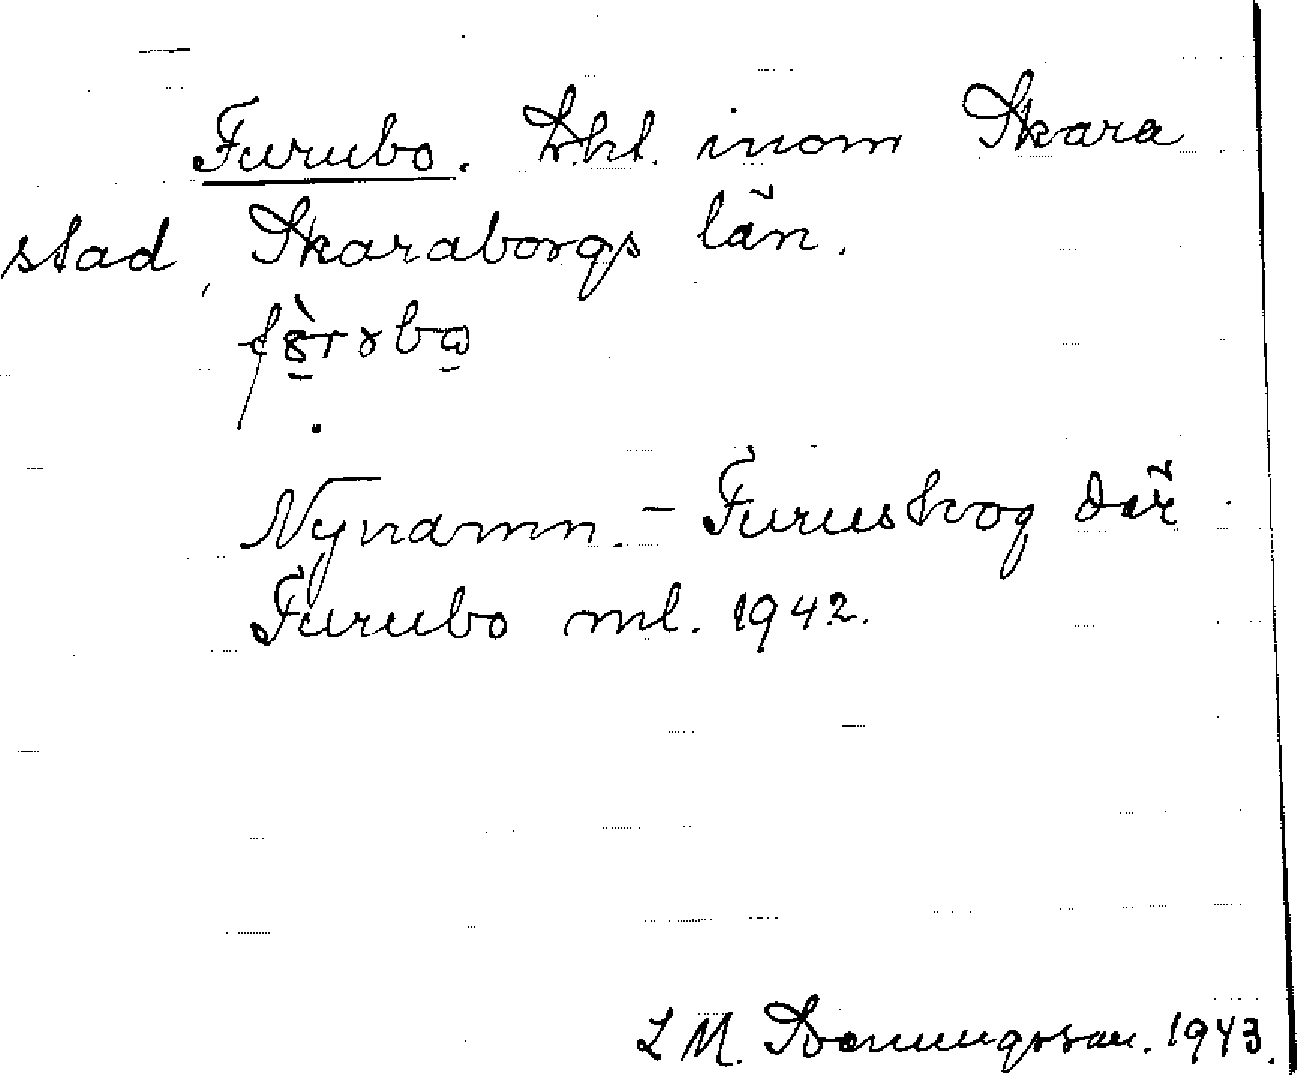 Furubo. Lht. inom Skara
stad, Skaraborgs län.
Nynamn. - Furuskog där
Furubo ml. 1942.
L M. Svenungsson. 1943.